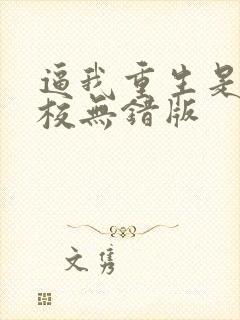 逼我重生是
校無錯版
文雋